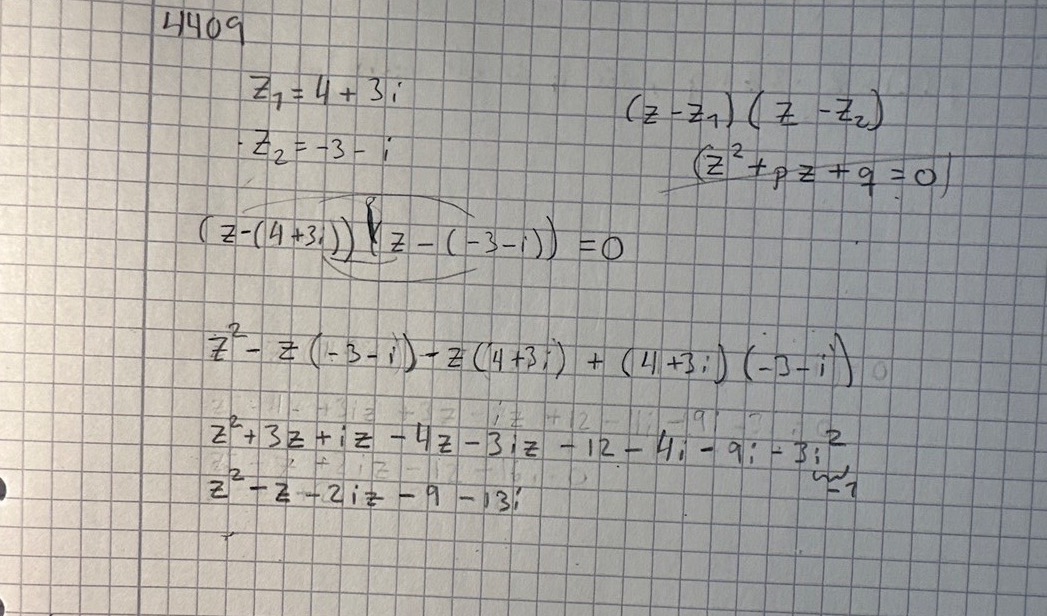 4409
z₁ = 4 + 3i
(z - z₁)(z - z₂)
z₂ = -3 - i
(z² + pz + q = 0)
(z-(4+3i))(z-(-3-i)) = 0
z² - z(-3-i) - z(4+3i) + (4+3i)(-3-i)
z² + 3z + iz - 4z - 3iz - 12 - 4i - 9i - 3i²
-1
z² - z - 2iz - 9 - 13i